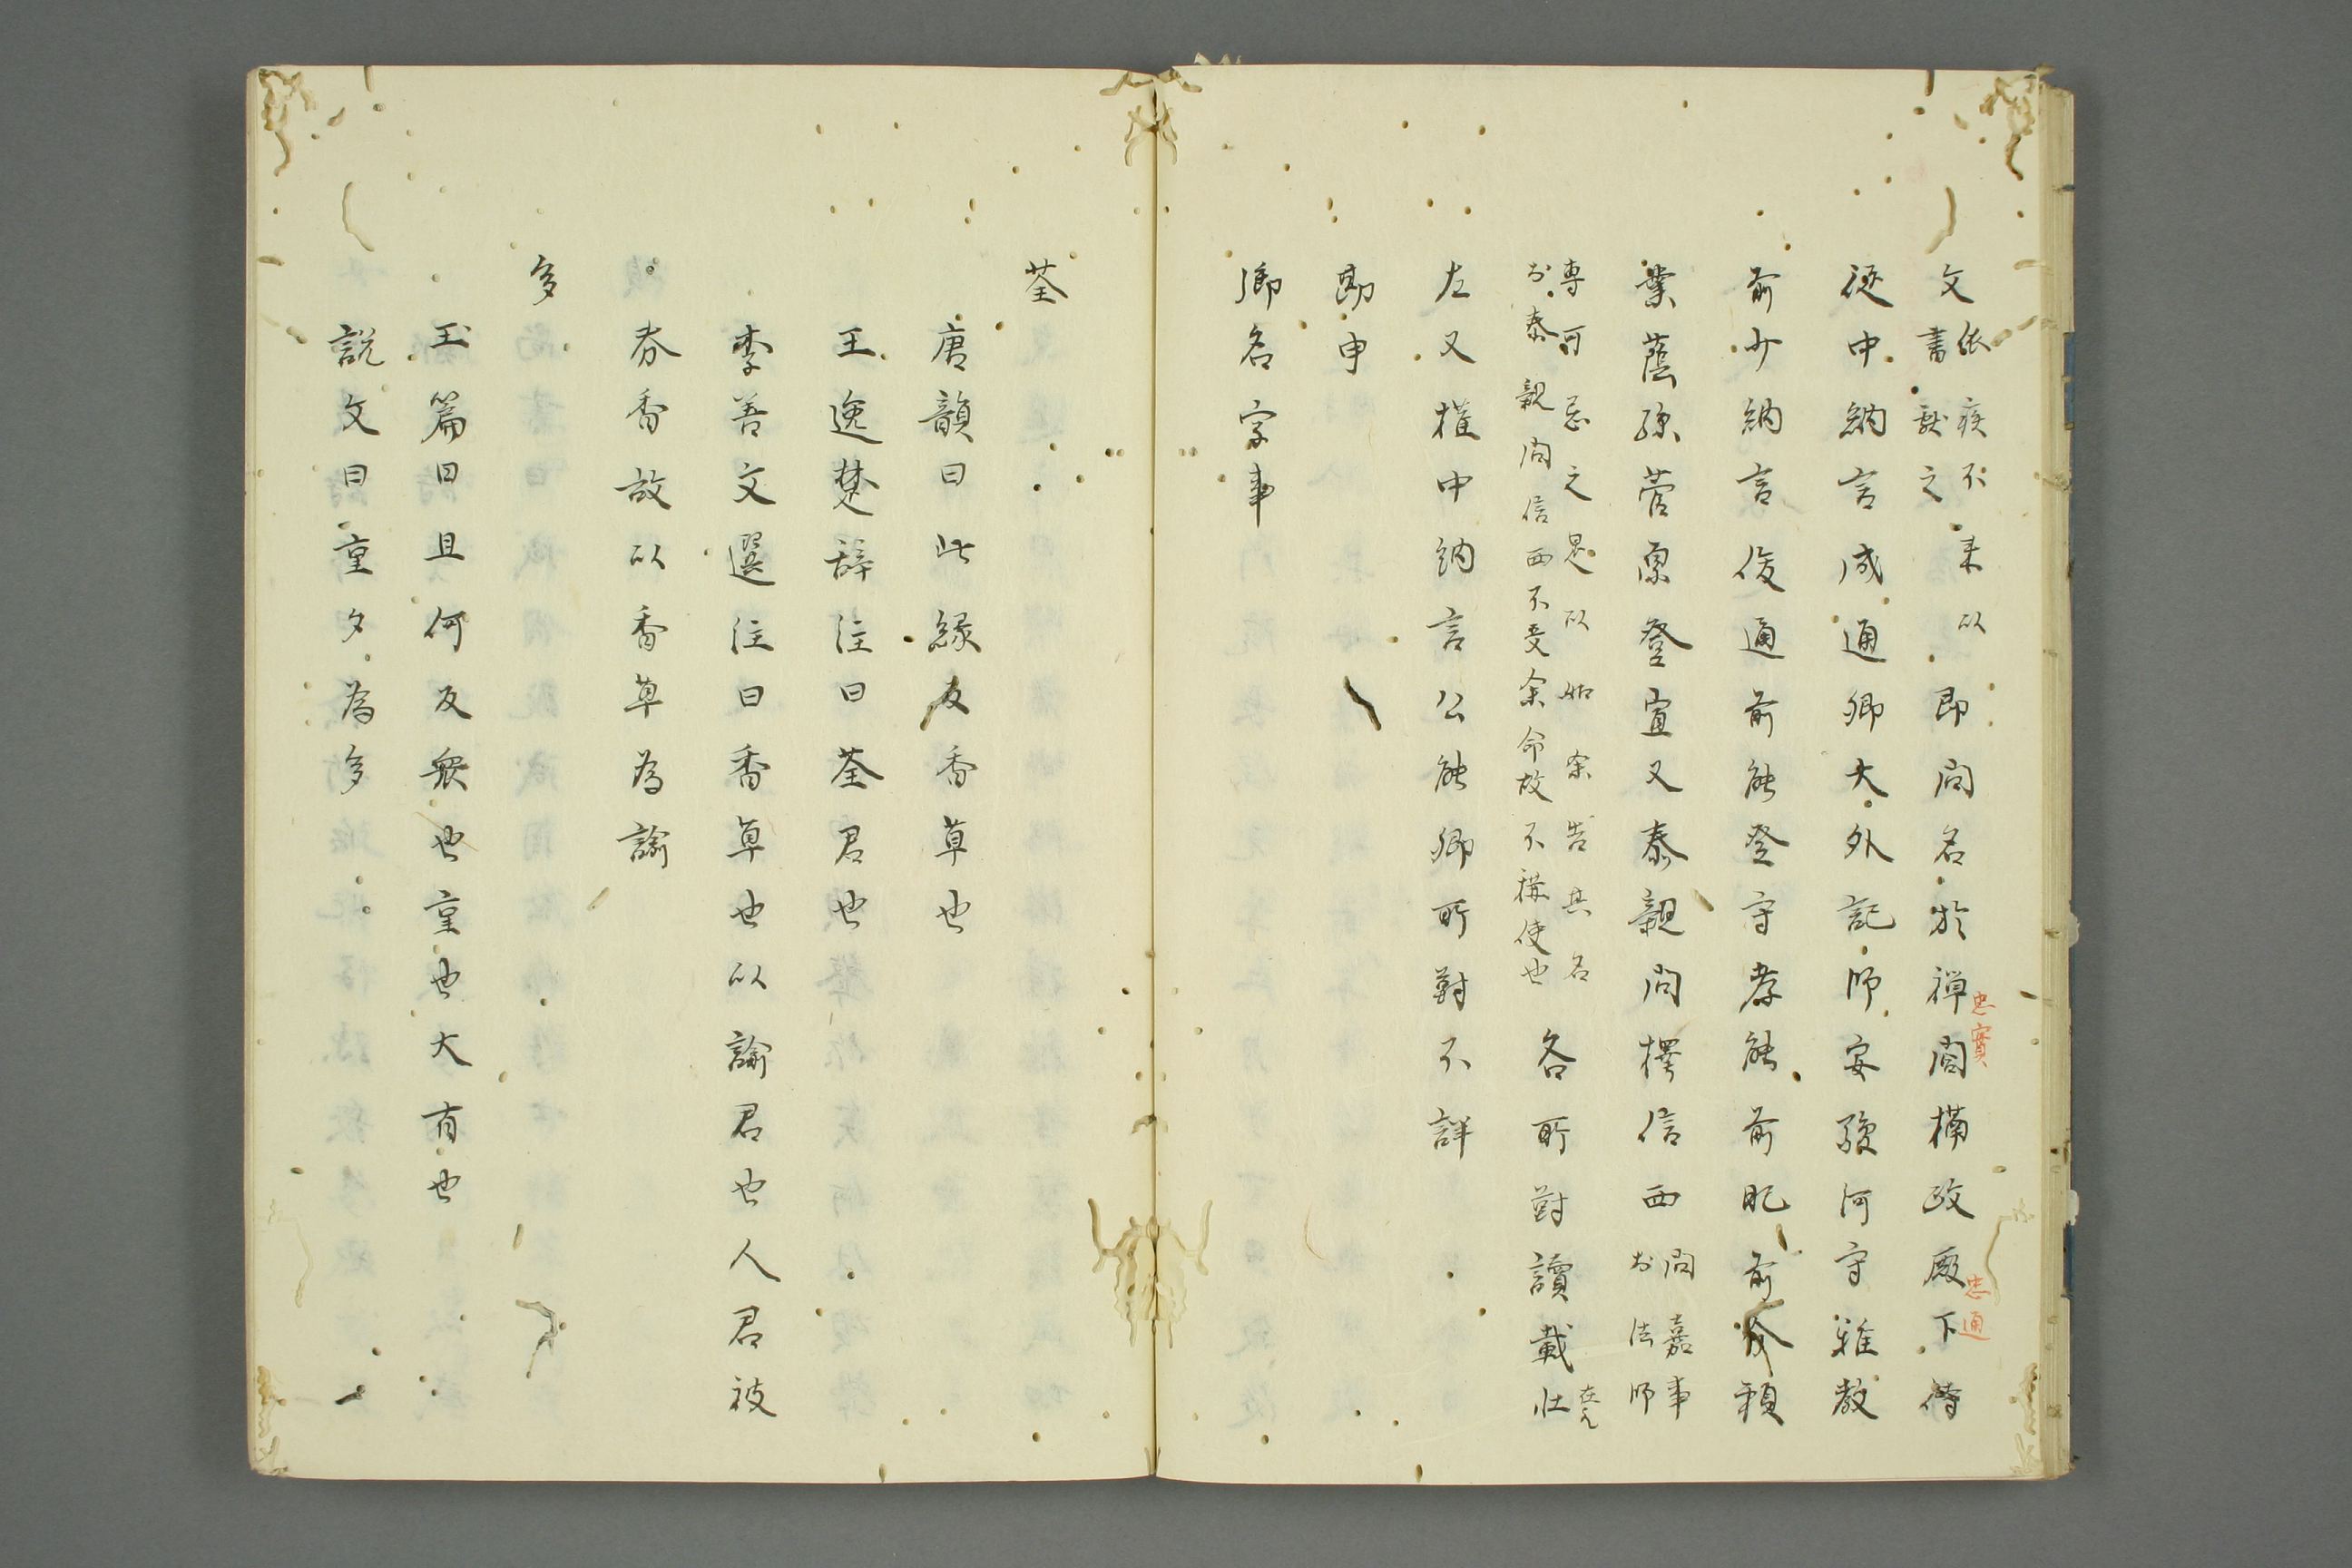 文依疾不来以書献之即問名於禅閤摂政殿下待
忠實
忠通
従中納言成通卿大外記師安駿河守雅教
前少納言俊通前能登守孝能前肥前介頼
業蔭孫菅原登宣又泰親問擇信西問嘉事於法師
専可忌之思以如余告其名
於泰親問信西不受余命故不稱使也
各所對讀載壮
左又権中納言公能卿所對不詳
勘申
御名字事
荃
唐韻曰此縁反香草也
王逸楚辞注曰荃君也
李善文選注曰香草也以諭君也人君被
芬香故以香草為諭
多
玉篇曰且何反衆也重也大有也
説文曰重夕為多